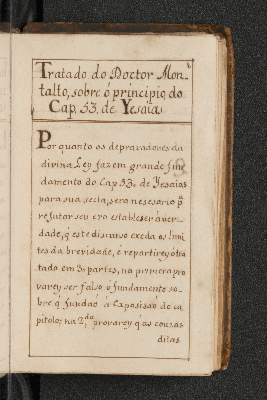 Tratado do Doctor Mon-
talto, sobre o principio do
Cap. 53. de Yesaias
Por quanto os depravadores da
divina Ley fazem grande fun
damento do Cap 53. de Yesaias
para sua secta, sera nesesario pa
refutar seu ero estableser a ver-
dade, q̃ este discurso exeda os limi
tes da brevidade, e repartirey o tra
tado em 3. partes, na primera pro
varey ser falso o fundamento so-
bre q̃ fundaõ a Exposisaõ do ca
pitolo: na 2.da provarey q̃ as couzas
ditas